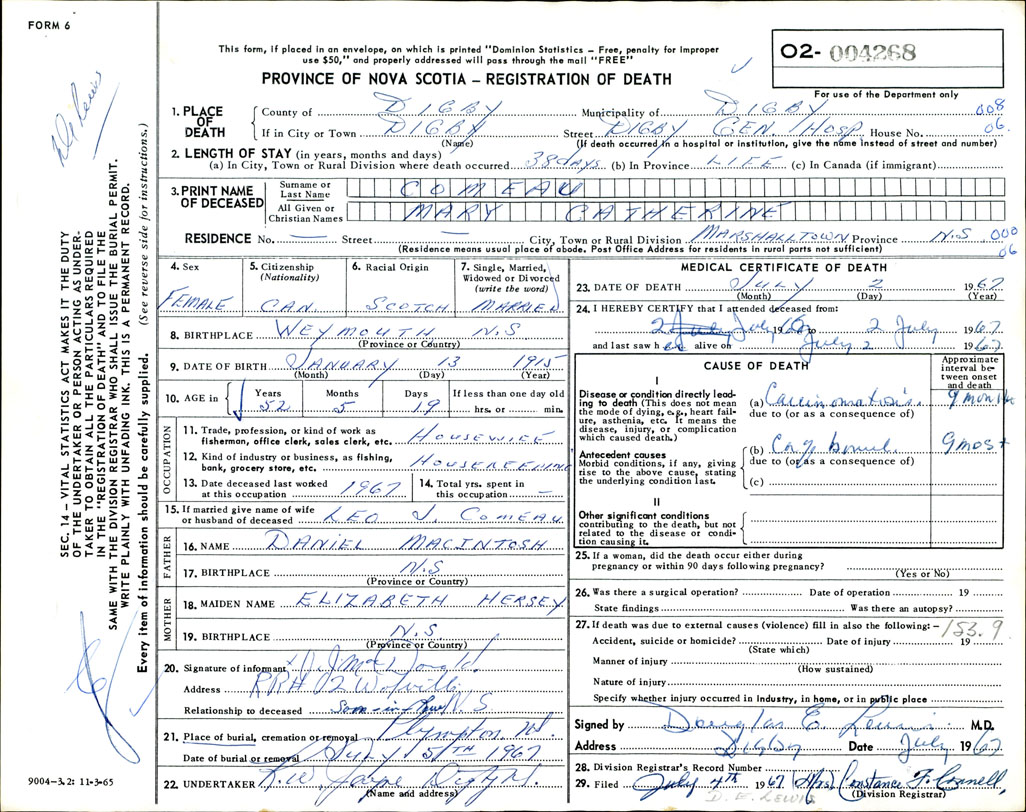 FORM 6
This form, if placed in an envelope, on which is printed "Dominion Statistics – Free, penalty for improper
use $50," and properly addressed will pass through the mail "FREE"
02- 004268
For use of the Department only
PROVINCE OF NOVA SCOTIA – REGISTRATION OF DEATH
1. PLACE OF DEATH County of DIGBY Municipality of DIGBY 008
If in City or Town DIGBY Street DIGBY GEN. HOSP House No. 06.
(Name) (If death occurred in a hospital or institution, give the name instead of street and number)
2. LENGTH OF STAY (in years, months and days)
(a) In City, Town or Rural Division where death occurred 38 days (b) In Province LIFE (c) In Canada (if immigrant)
3. PRINT NAME OF DECEASED Surname or Last Name COMEAU
All Given or Christian Names MARY CATHERINE
RESIDENCE No. — Street — City, Town or Rural Division MARSHALLTOWN Province N.S 000
06
(Residence means usual place of abode. Post Office Address for residents in rural parts not sufficient)
4. Sex FEMALE
5. Citizenship (Nationality) CAN.
6. Racial Origin SCOTCH
7. Single, Married, Widowed or Divorced (write the word) MARRIED
8. BIRTHPLACE WEYMOUTH N.S
(Province or Country)
9. DATE OF BIRTH JANUARY 13 1915
(Month) (Day) (Year)
10. AGE in Years Months Days If less than one day old
52 5 19 hrs. or min.
OCCUPATION
11. Trade, profession, or kind of work as fisherman, office clerk, sales clerk, etc. HOUSEWIFE
12. Kind of industry or business, as fishing, bank, grocery store, etc. HOUSEKEEPING
13. Date deceased last worked at this occupation 1967
14. Total yrs. spent in this occupation —
15. If married give name of wife or husband of deceased LEO J. COMEAU
FATHER
16. NAME DANIEL MACINTOSH
17. BIRTHPLACE N.S
(Province or Country)
MOTHER
18. MAIDEN NAME ELIZABETH HERSEY
19. BIRTHPLACE N.S.
(Province or Country)
20. Signature of informant J MacDonald
Address RR# 02 Wolfville
Relationship to deceased Son-in-law N.S
21. Place of burial, cremation or removal Plympton N.S.
Date of burial or removal July 5TH 1967
22. UNDERTAKER R.W. Jayne Digby N.S.
(Name and address)
9004–3.2: 11-3-65
MEDICAL CERTIFICATE OF DEATH
23. DATE OF DEATH JULY 2 1967
(Month) (Day) (Year)
24. I HEREBY CERTIFY that I attended deceased from:
2 July 1967 to 2 July 1967
and last saw her alive on July 2 1967
CAUSE OF DEATH
Approximate interval between onset and death
I
Disease or condition directly leading to death (This does not mean the mode of dying, e.g., heart failure, asthenia, etc. It means the disease, injury, or complication which caused death.)
(a) Carcinomatosis 9 months
due to (or as a consequence of)
Antecedent causes
Morbid conditions, if any, giving rise to the above cause, stating the underlying condition last.
(b) Ca of bowel 9 mos +
due to (or as a consequence of)
(c)
II
Other significant conditions
contributing to the death, but not related to the disease or condition causing it.
25. If a woman, did the death occur either during pregnancy or within 90 days following pregnancy?
(Yes or No)
26. Was there a surgical operation? Date of operation 19
State findings Was there an autopsy?
27. If death was due to external causes (violence) fill in also the following: – 153.9
Accident, suicide or homicide? Date of injury 19
(State which)
Manner of injury
(How sustained)
Nature of injury
Specify whether injury occurred in Industry, in home, or in public place
Signed by Douglas E. Lewis M.D.
Address Digby Date July 1967
28. Division Registrar's Record Number
29. Filed July 4th 1967 (Mrs) Constance F. Connell
(Division Registrar)
D. E. LEWIS
SEC. 14 – VITAL STATISTICS ACT MAKES IT THE DUTY
OF THE UNDERTAKER OR PERSON ACTING AS UNDER-
TAKER TO OBTAIN ALL THE PARTICULARS REQUIRED
IN THE "REGISTRATION OF DEATH" AND TO FILE THE
SAME WITH THE DIVISION REGISTRAR WHO SHALL ISSUE THE BURIAL PERMIT.
WRITE PLAINLY WITH UNFADING INK. THIS IS A PERMANENT RECORD.
Every item of information should be carefully supplied. (See reverse side for instructions.)